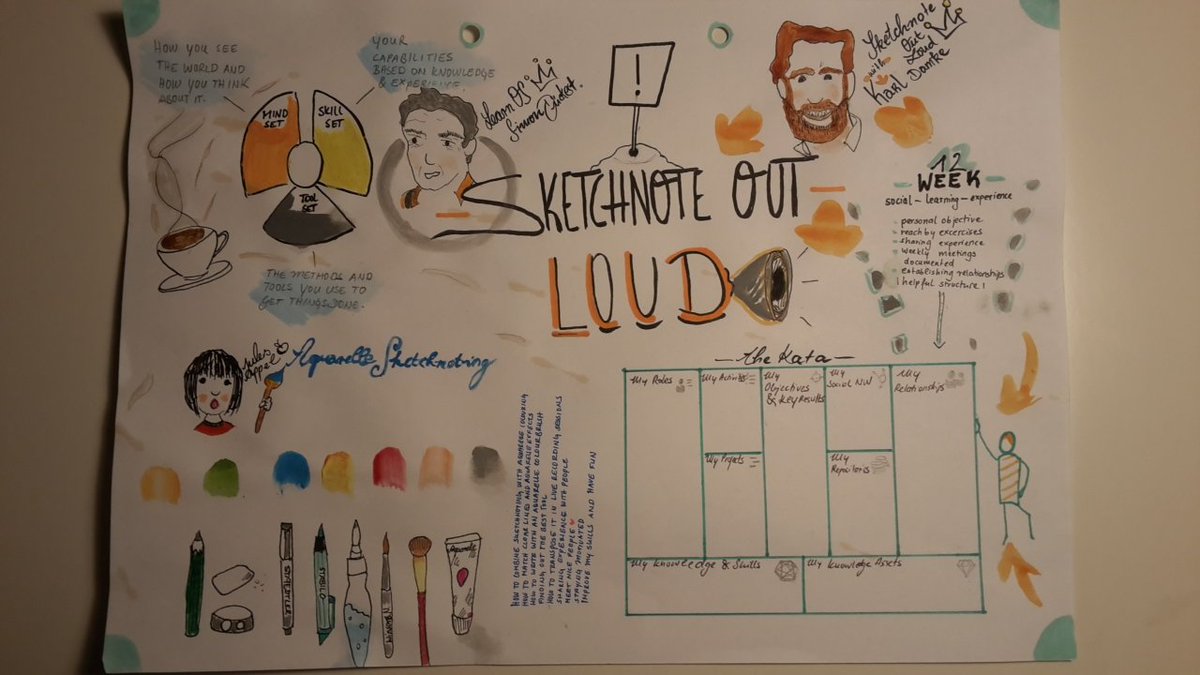 HOW YOU SEE
THE WORLD AND
HOW YOU THINK
ABOUT IT.
YOUR
CAPABILITIES
BASED ON KNOWLEDGE
& EXPERIENCE.
MIND
SET
SKILL
SET
TOOL
SET
THE METHODS AND
TOOLS YOU USE TO
GET THINGS DONE.
Learn OS
Simon
!
Sketchnote
Out
Loud
with
Karl Damke
SKETCHNOTE OUT
LOUD
12
WEEK
social-learning-experience
- personal objective
- reach by excercises
- sharing experience
- weekly meetings
documented
- establishing relationships
! helpful structure!
Jules
Appel
Aquarelle Sketchnoting
HOW TO COMBINE SKETCHNOTING WITH AQUARELLE COLOURING
HOW TO MATCH CLEAR LINES AND AQUARELLE EFFECTS
HOW TO WRITE WITH AN AQUARELLE COLOURBRUSH
FINDING OUT THE BEST TOOL
HOW TO TRANSPOSE IT IN LIVE RECORDING SESSIONS
SHARING EXPERIENCE WITH PEOPLE
MEET NICE PEOPLE
STAYING MOTIVATED
IMPROVE MY SKILLS AND HAVE FUN
STAEDTLER
STABILO
Aquarelle
- The Kata -
My Roles
My Activities
My
Objectives
& Key Results
My
Social NW
My
Relationships
My Projects
My
Repositories
My Knowledge & Skills
My Knowledge Assets